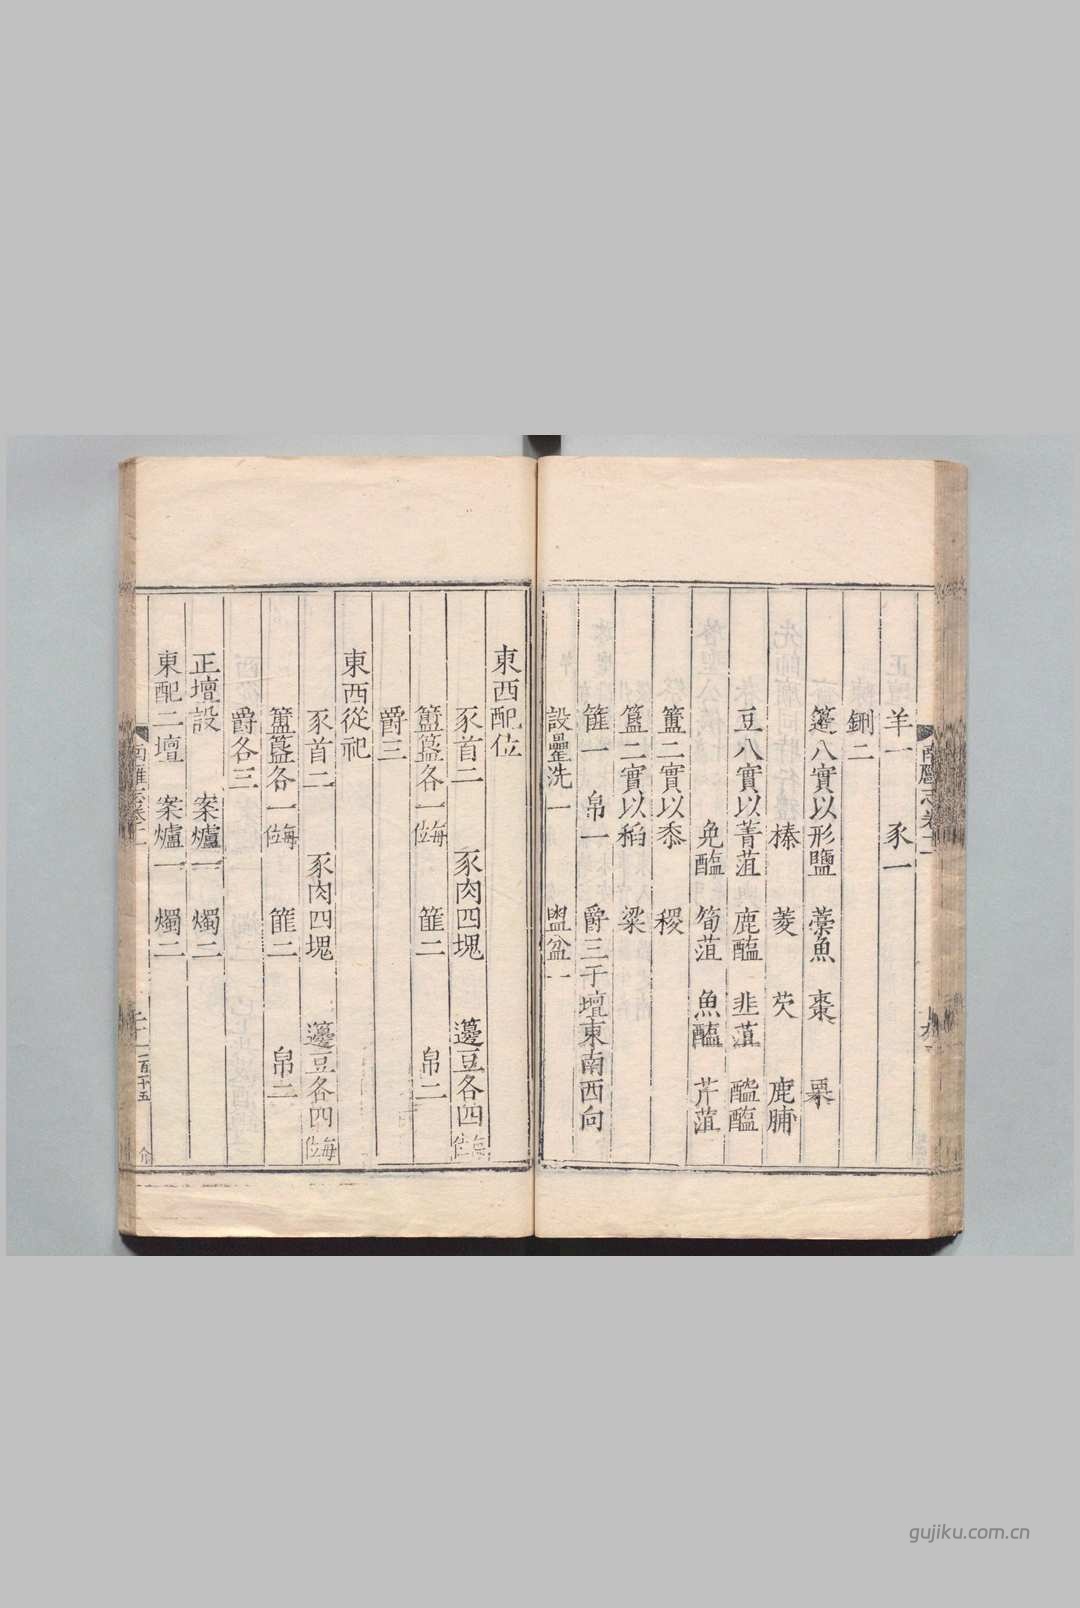 羊一 豕一
鉶二
籩八實以形鹽 藁魚 棗 栗
榛 菱 芡 鹿脯
豆八實以菁菹 鹿醢 韭菹 醓醢
兔醢 筍菹 魚醢 芹菹
簠二實以黍 稷
簋二實以稻 粱
篚一 帛一 爵三于壇東南西向
設罍洗一 盥盆一
東西配位
豕首二 豕肉四塊 籩豆各四每位
簠簋各一每位 篚二 帛二
爵三
東西從祀
豕首二 豕肉四塊 籩豆各四每位
簠簋各一每位 篚二 帛二
爵各三
正壇設 案爐一 燭二
東配二壇 案爐一 燭二
gujiku.com.cn